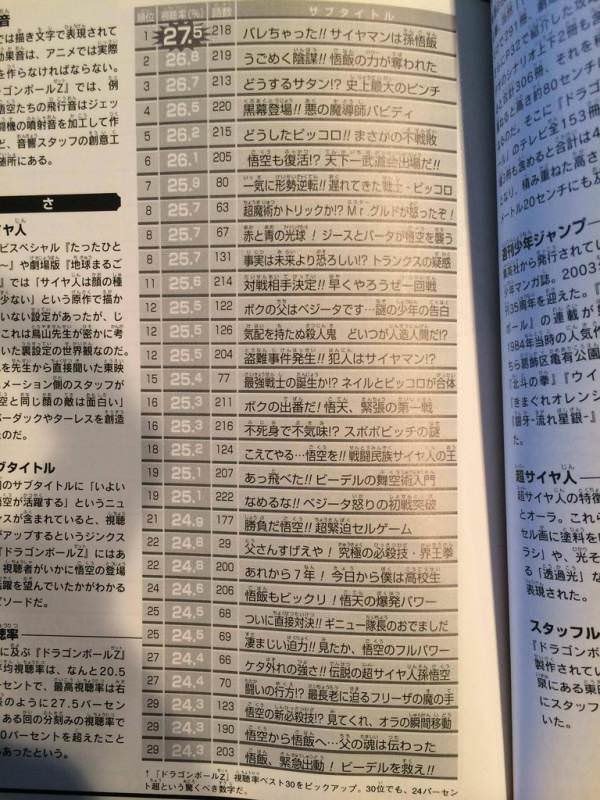 音
では描き文字で表現されて
効果音は、アニメでは実際
を作らなければならない。
ドラゴンボールZ』では、例
悟空たちの飛行音はジェッ
闘機の噴射音を加工して作
ど、音響スタッフの創意工
随所にある。
さ
イヤ人
ビスペシャル『たったひと
～』や劇場版『地球まるご
』では「サイヤ人は顔の種
少ない」という原作で描か
いない設定があったが、じ
これは鳥山先生が密かに考
いた裏設定の世界観なのだ。
を先生から直接聞いた東映
メーション側のスタッフが
空と同じ顔の敵は面白い」
バーダックやターレスを創造
たのだ。
ブタイトル
のサブタイトルに「いよい
空が活躍する」というニュ
スが含まれていると、視聴
がアップするというジンクス
『ドラゴンボールZ』にはあ
視聴者がいかに悟空の登場
活躍を望んでいたかがわかる
ピソードだ。
聴率
に及ぶ『ドラゴンボールZ』
平均視聴率は、なんと20.5
ーセントで、最高視聴率は右
表のように27.5パーセン
ある回の分刻みの視聴率で
0パーセントを超えたこと
もあったという。
順位 視聴率(%) 話数 サブタイトル
1 27.5 218 バレちゃった!! サイヤマンは孫悟飯
2 26.8 219 うごめく陰謀!! 悟飯の力が奪われた
3 26.7 213 どうするサタン!? 史上最大のピンチ
4 26.5 220 黒幕登場!! 悪の魔導師バビディ
5 26.2 215 どうしたピッコロ!! まさかの不戦敗
6 26.1 205 悟空も復活!? 天下一武道会出場だ!!
7 25.9 80 一気に形勢逆転!! 遅れてきた戦士・ピッコロ
8 25.7 63 超魔術かトリックか!? Mr.グルドが怒ったぞ!
8 25.7 67 赤と青の光球! ジースとバータが悟空を襲う
8 25.7 131 事実は未来より恐ろしい!? トランクスの疑惑
11 25.6 214 対戦相手決定!! 早くやろうぜ一回戦
12 25.5 122 ボクの父はベジータです…謎の少年の告白
12 25.5 126 気配を持たぬ殺人鬼 どいつが人造人間だ!?
12 25.5 204 盗難事件発生!! 犯人はサイヤマン!?
15 25.4 77 最強戦士の誕生か!? ネイルとピッコロが合体
16 25.3 211 ボクの出番だ! 悟天、緊張の第一戦
16 25.3 216 不死身で不気味!? スポポビッチの謎
18 25.2 124 こえてやる…悟空を!! 戦闘民族サイヤ人の王
19 25.1 207 あっ飛べた!! ビーデルの舞空術入門
19 25.1 222 なめるな!! ベジータ怒りの初戦突破
21 24.9 177 勝負だ悟空!! 超緊迫セルゲーム
22 24.8 29 父さんすげえや! 究極の必殺技・界王拳
22 24.8 200 あれから7年! 今日から僕は高校生
24 24.6 206 悟飯もビックリ! 悟天の爆発パワー
25 24.5 68 ついに直接対決!! ギニュー隊長のおでましだ
25 24.5 69 凄まじい迫力!! 見たか、悟空のフルパワー
27 24.4 66 ケタ外れの強さ!! 伝説の超サイヤ人孫悟空
27 24.4 70 闘いの行方!? 最長老に迫るフリーザの魔の手
29 24.3 123 悟空の新必殺技!? 見てくれ、オラの瞬間移動
29 24.3 190 悟空から悟飯へ…父の魂は伝わった
29 24.3 203 悟飯、緊急出動! ビーデルを救え!!
↑『ドラゴンボールZ』視聴率ベスト30をピックアップ。30位でも、24パーセン
ト超という驚くべき数字だ。
週刊少年ジャンプ
集英社から発行されてい
年マンガ誌。2003
35周年を迎えた。『
ボール』の連載が
1984年当時の人気作
ちら葛飾区亀有公園
『北斗の拳』『ウイ
きまぐれオレンジ
『銀牙-流れ星銀-』
超サイヤ人
超サイヤ人の特徴
とオーラ。これら
セル画に塗料を
ラシ」や、光そ
る「透過光」な
表現された。
スタッフル
『ドラゴンボー
製作されてい
泉にある東
にスタッフ
いた。